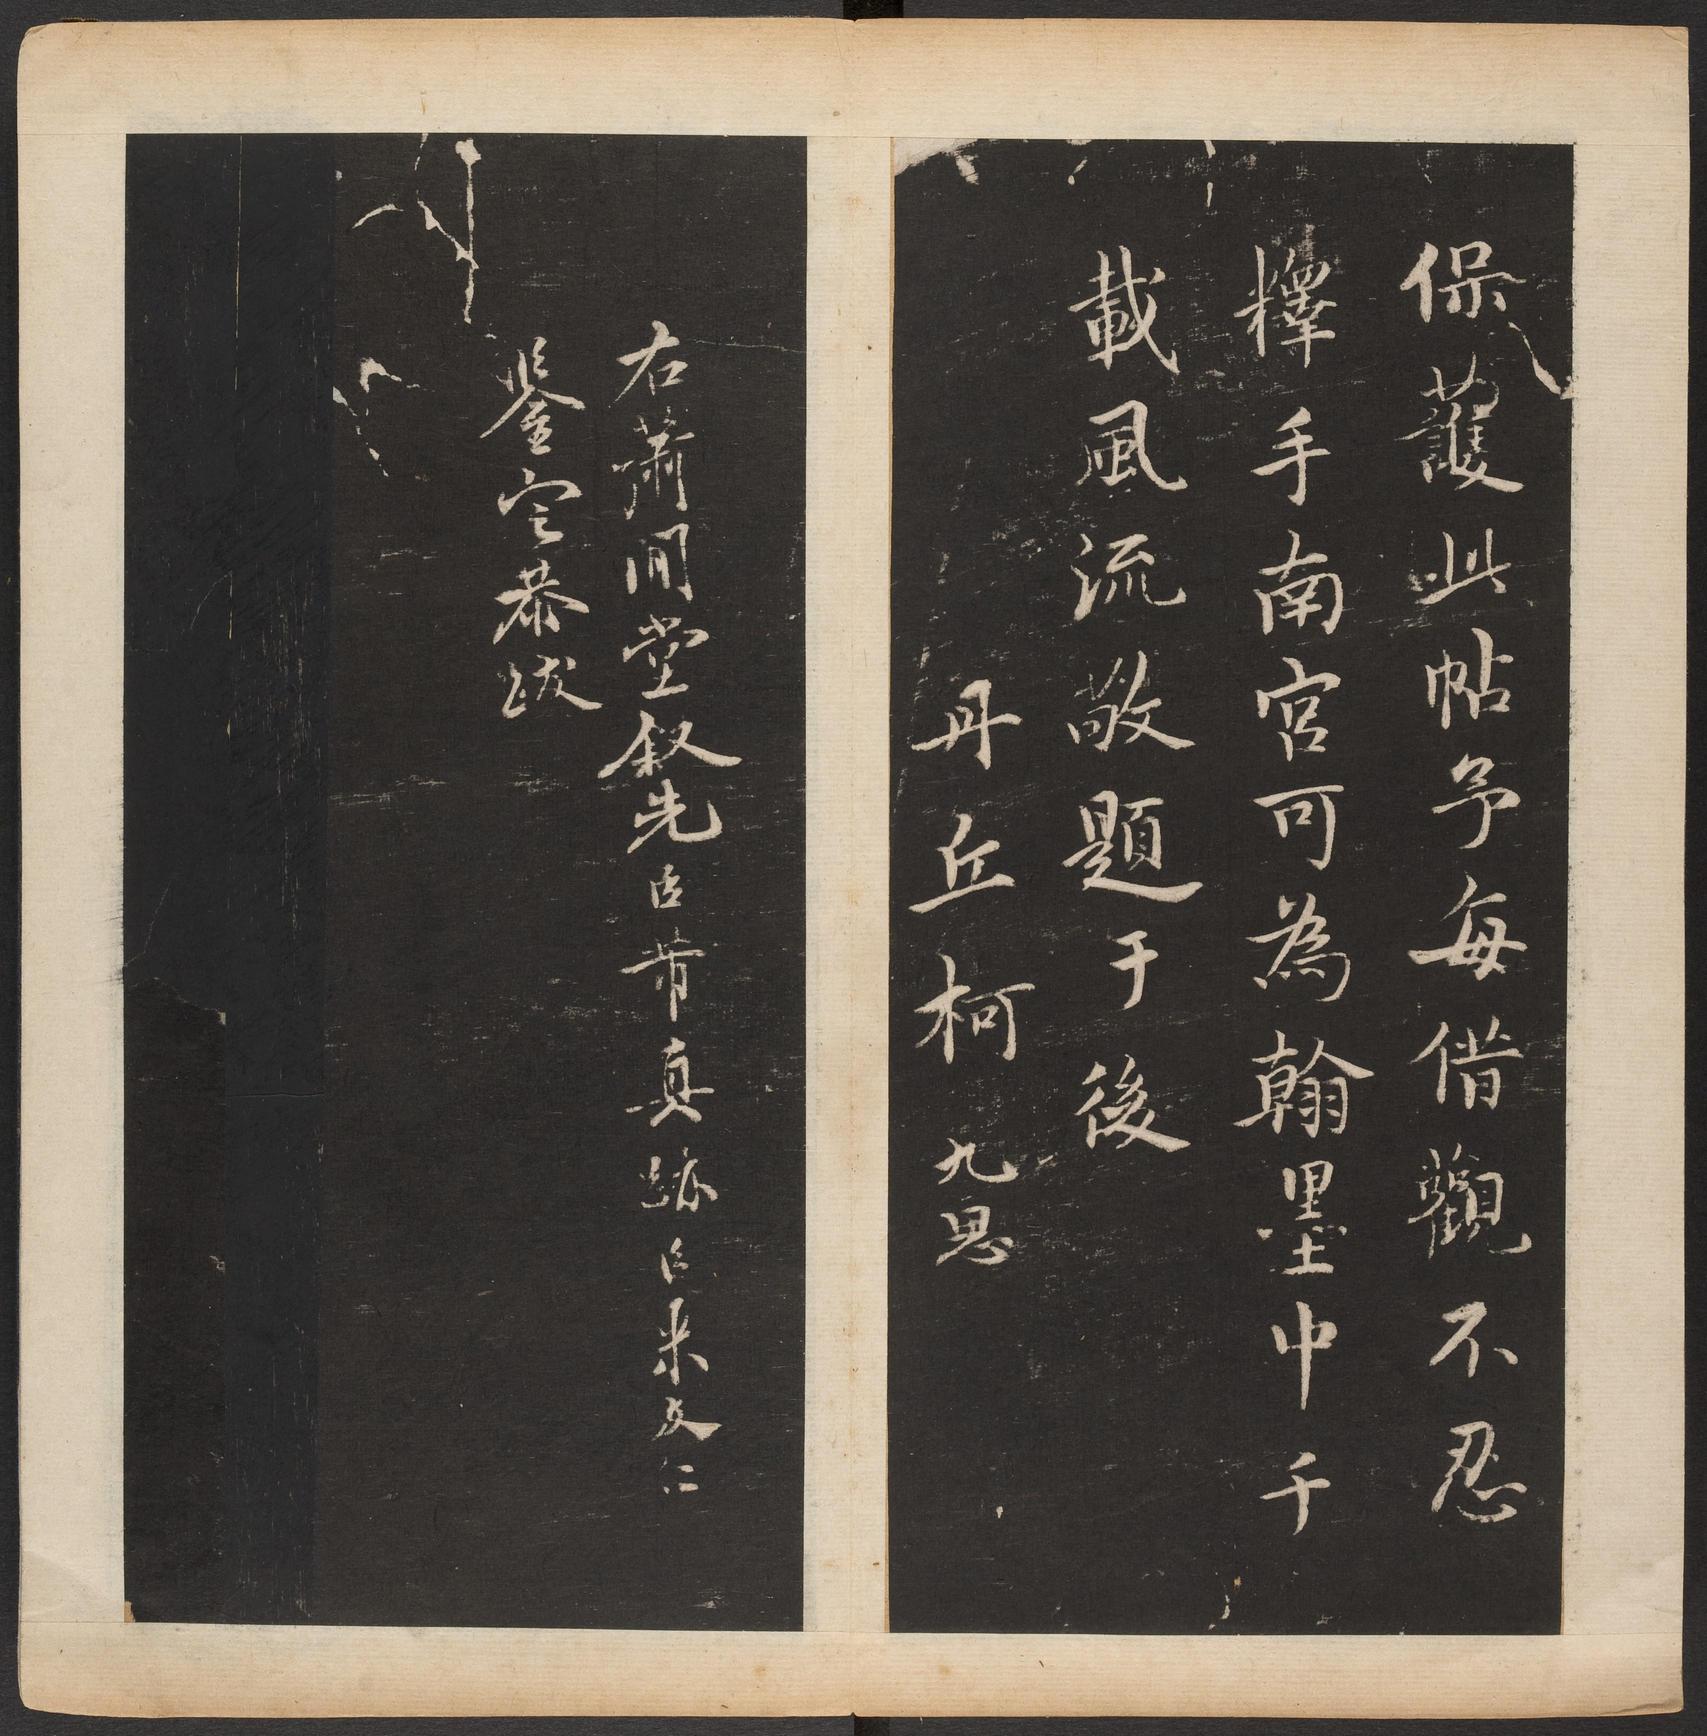 保護此帖予每借觀不忍
釋手南宮可為翰墨中千
載風流敬題于後
丹丘柯九思
右蕭閒堂叙先臣芾真跡臣米友仁
鉴定恭跋